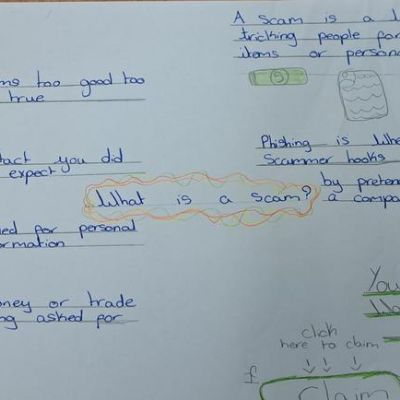 A scam is a
tricking people for
items or
ms too good too
true
tact you did
expect
Phishing is
Scammer hooks
by
What is a scam?
a
ed for personal
ormation
oney or trade
ng asked for
You
click
here to claim
Claim